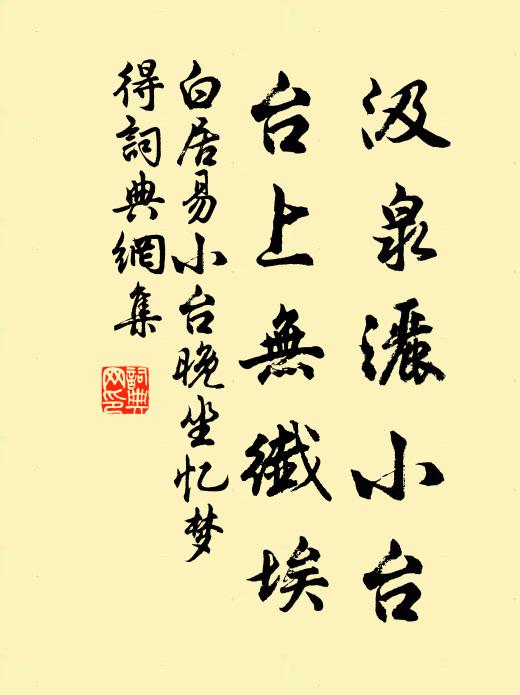 汲泉灑小台
台上無纖埃
白居易小台晚坐忆梦
得詞典網集
詞典
网印